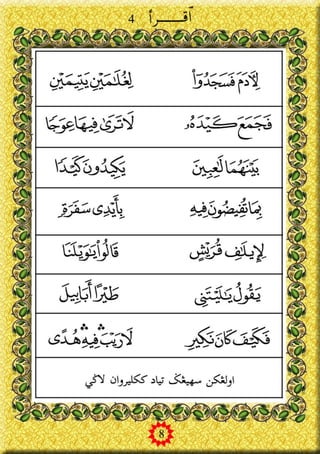 اقرأ 4
لِأَدَمَ فَسَجَدُوٓا۟ لِغُلَٰمَيْنِ يَتِيمَيْنِ
فَجَمَعَ كَيْدَهُۥ لَا تَرَىٰ فِيهَا عِوَجًا
بَيْنَهُمَا لَٰعِبِينَ يَكِيدُونَ كَيْدًا
بِمَا تُفِيضُونَ فِيهِ بِأَيْدِى سَفَرَةٍ
لِإِيلَٰفِ قُرَيْشٍ قَالُوا۟ يَٰوَيْلَنَا
يَقُولُ يَٰلَيْتَنِى طَيْرًا أَبَابِيلَ
فَكَيْفَ كَانَ نَكِيرِ لَا رَيْبَ ۛ فِيهِ ۛ هُدًى
اولڠكن سهيڠݢ تياد ككليروان لاݢي
8